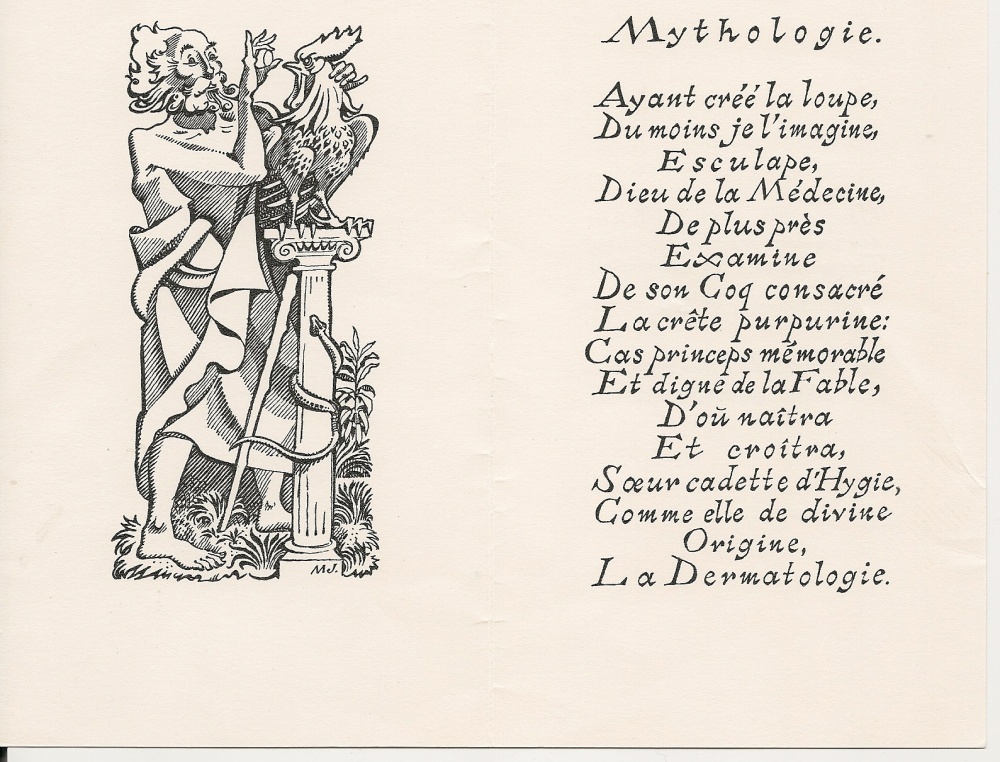 Mythologie.
Ayant créé la loupe,
Du moins je l'imagine,
Esculape,
Dieu de la Médecine,
De plus près
Examine
De son Coq consacré
La crête purpurine:
Cas princeps mémorable
Et digne de la Fable,
D'où naîtra
Et croîtra,
Sœur cadette d'Hygie,
Comme elle de divine
Origine,
La Dermatologie.
MJ.